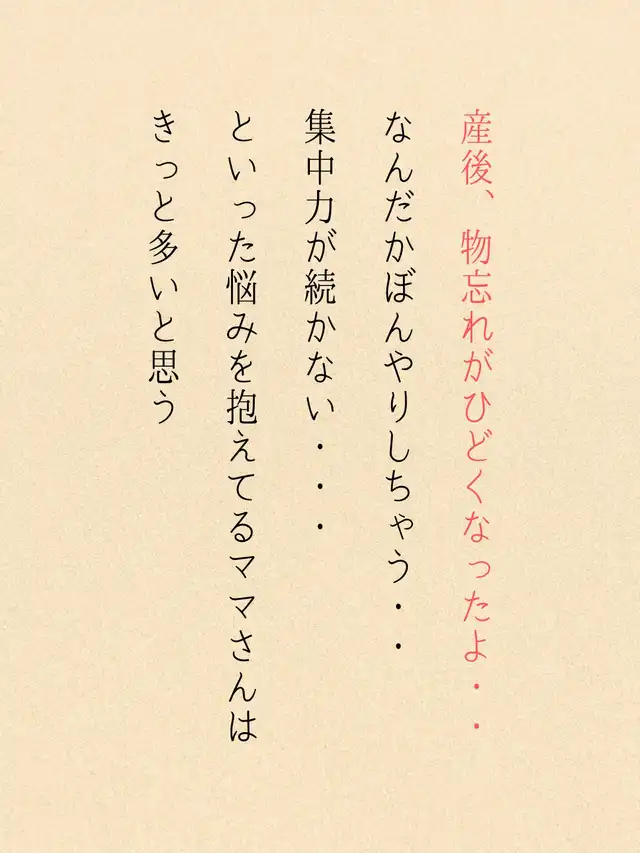 産後、物忘れがひどくなったよ・・
なんだかぼんやりしちゃう・・
集中力が続かない・・・
といった悩みを抱えてるママさんは
きっと多いと思う